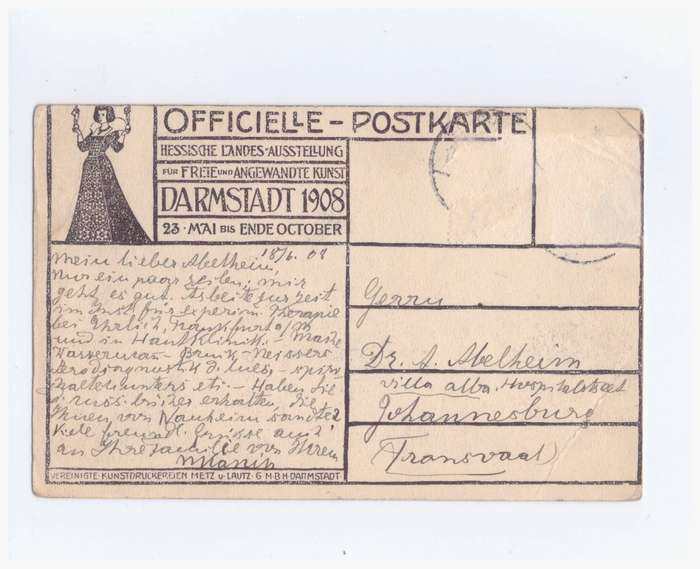 OFFICIELLE - POSTKARTE
HESSISCHE LANDES-AUSSTELLUNG
FÜR FREIE UND ANGEWANDTE KUNST
DARMSTADT 1908
23. MAI BIS ENDE OCTOBER
18/6. 08
Mein lieber Abelheim,
Nur ein paar Zeilen, mir
geht es gut. Arbeite zur Zeit
im Inst für experim. Therapie
bei Ehrlich, Frankfurt a/M
und in Hautklinik. - Mache
Wasserman - Bruck - Neissers
Serodiagnostik d. Lues, - spiro-
etc. - Haben Sie
erhalten, die
Ihnen von Nauheim sandte?
Viele freundl. Grüsse auch
an Ihre Familie von Ihrem
VEREINIGTE KUNSTDRUCKEREIEN METZ U. LAUTZ G.M.B.H. DARMSTADT
Herrn
Dr. A. Abelheim
Villa alba, Hospitalstreet
Johannesburg
Transvaal